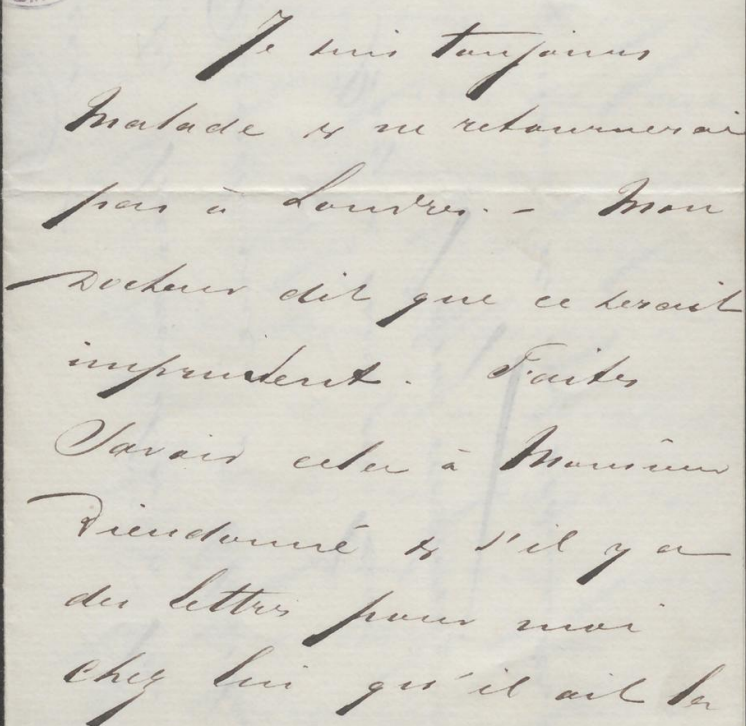 Je suis toujours
Malade & ne retournerai
pas à Londres. - Mon
Docteur dit que ce serait
imprudent. Faites
Savoir cela à Monsieur
Dieudonné & s'il y a
des lettres pour moi
chez lui qu'il ait la